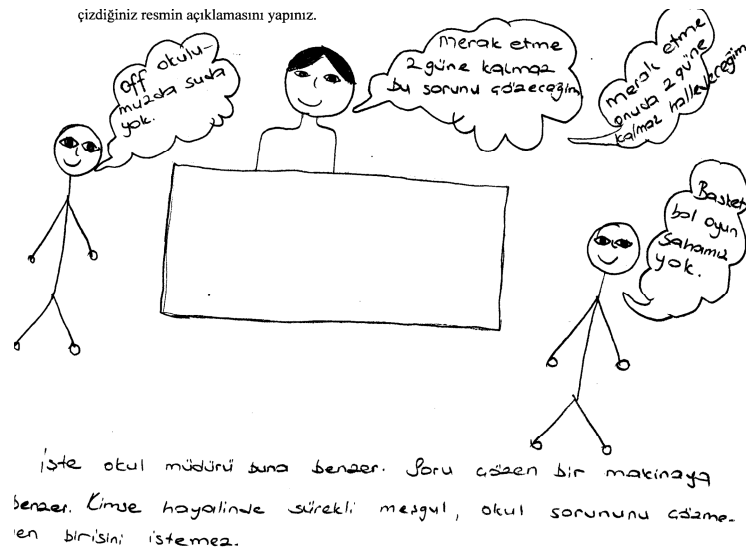 çizdiğiniz resmin açıklamasını yapınız.
off okulu-
muzda suda
yok.
Merak etme
2 güne kalmaz
bu sorunu çözeceğim
merak etme
onuda 2 güne
kalmaz halledeceğim
Basket
bol oyun
sahamız
yok.
İşte okul müdürü buna benzer. Soru çözen bir makinaya
benzer. Kimse hayalinde sürekli meşgul, okul sorununu çözme-
en birisini istemez.